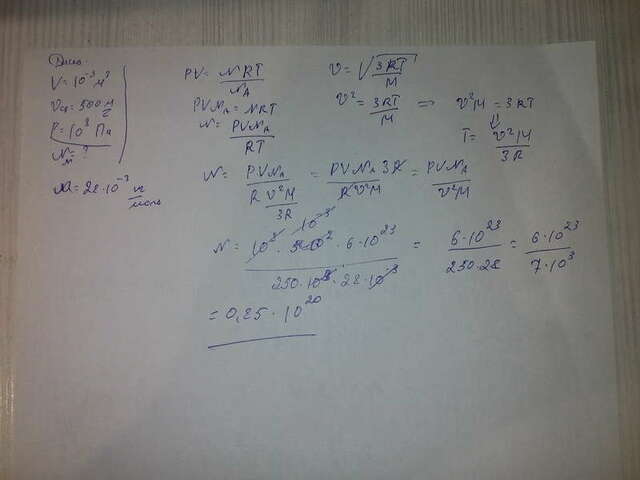 Дано.
V = 10⁻³ м³
Vср = 500 м/с
P = 10⁸ Па
N - ?
M = 28 · 10⁻³ кг/моль
PV = NRT/Nₐ
PVNₐ = NRT
N = PVNₐ/RT
V = √(3RT/M)
V² = 3RT/M => V²M = 3RT
T = V²M/3R
N = PVNₐ/(R V²M/3R) = PVNₐ3R/RV²M = PVNₐ/V²M
= 6·10²³/250·28 = 6·10²³/7·10³
= 0,85 · 10²⁰